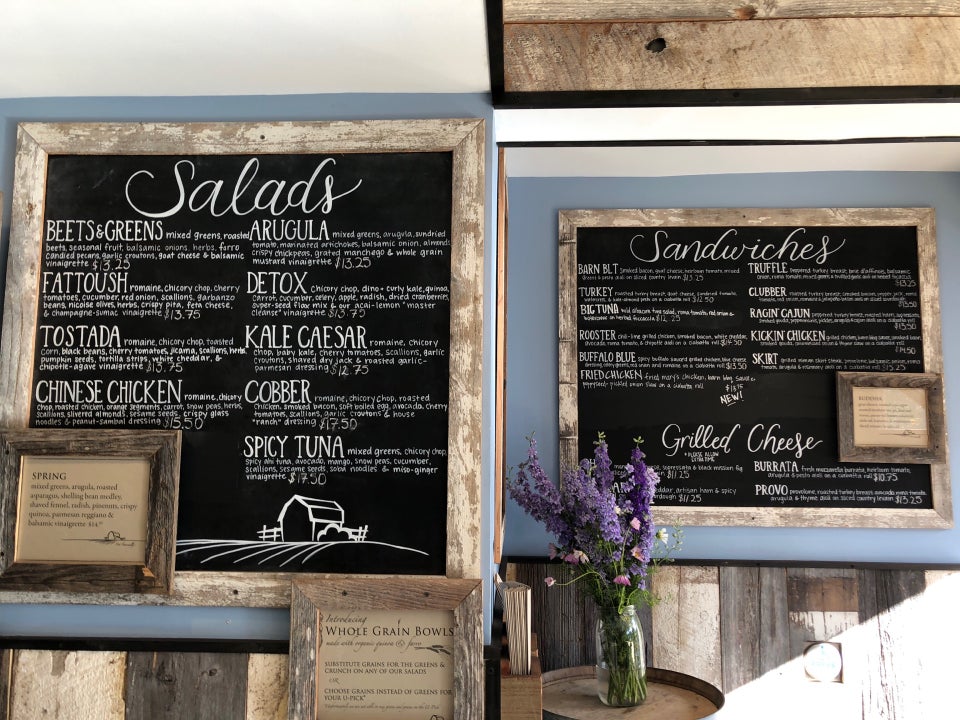 Salads
BEETS & GREENS mixed greens, roasted
beets, seasonal fruit, balsamic onions, herbs, farro
candied pecans, garlic croutons, goat cheese & balsamic
vinaigrette $13.25
FATTOUSH romaine, chicory chop, cherry
tomatoes, cucumber, red onion, scallions, garbanzo
beans, nicoise olives, herbs, crispy pita, feta cheese,
& champagne-sumac vinaigrette $13.75
TOSTADA romaine, chicory chop, toasted
corn, black beans, cherry tomatoes, jicama, scallions, herbs,
pumpkin seeds, tortilla strips, white cheddar, &
chipotle-agave vinaigrette $13.75
CHINESE CHICKEN romaine, chicory
chop, roasted chicken, orange segments, carrot, snow peas, herbs,
scallions, slivered almonds, sesame seeds, crispy glass
noodles & peanut-sambal dressing $15.50
ARUGULA mixed greens, arugula, sundried
tomato, marinated artichokes, balsamic onion, almonds
crispy chickpeas, grated manchego & whole grain
mustard vinaigrette $13.25
DETOX chicory chop, dino + curly kale, quinoa,
carrot, cucumber, celery, apple, radish, dried cranberries,
super-seed flax mix & our acai-lemon "master
cleanse" vinaigrette $13.75
KALE CAESAR romaine, chicory
chop, baby kale, cherry tomatoes, scallions, garlic
croutons, shaved dry jack & roasted garlic-
parmesan dressing $12.75
COBBER romaine, chicory chop, roasted
chicken, smoked bacon, soft boiled egg, avocado, cherry
tomatoes, scallions, garlic croutons & house
"ranch" dressing $17.50
SPICY TUNA mixed greens, chicory chop,
spicy ahi tuna, avocado, mango, snow peas, cucumber,
scallions, sesame seeds, soba noodles & miso-ginger
vinaigrette $17.50
SPRING
mixed greens, arugula, roasted
asparagus, shelling bean medley,
shaved fennel, radish, pinenuts, crispy
quinoa, parmesan reggiano &
balsamic vinaigrette
Introducing
WHOLE GRAIN BOWLS
made with organic quinoa & farro
SUBSTITUTE GRAINS FOR THE GREENS &
CRUNCH ON ANY OF OUR SALADS
OR
CHOOSE GRAINS INSTEAD OF GREENS FOR
YOUR U-PICK*
Sandwiches
BARN BLT smoked bacon, goat cheese, heirloom tomato, mixed
greens & pesto aioli on sliced country levain $13.25
TURKEY roasted turkey breast, goat cheese, sundried tomato,
watercress, & kale-almond pesto on a ciabatta roll $12.50
BIG TUNA wild albacore tuna salad, roma tomato, red onion &
watercress on herbal foccacia $12.25
ROOSTER chili-lime grilled chicken, smoked bacon, white cheddar,
avocado, roma tomato, & chipotle aioli on a ciabatta roll
BUFFALO BLUE spicy buffalo sauced grilled chicken, blue cheese
FRIED CHICKEN fried mary's chicken, barn bbq sauce
NEW!
TRUFFLE peppered turkey breast, brie d'affinois, balsamic
onion, roma tomato, mixed greens & truffled aioli on
$13.25
CLUBBER roasted turkey breast, smoked bacon, pepper jack,
$13.50
RAGIN' CAJUN peppered turkey breast,
$13.50
KICKIN' CHICKEN grilled chicken,
$14.50
SKIRT grilled skirt steak, provolone, balsamic onion, roma
tomato, arugula & rosemary aioli on a ciabatta roll $15.25
BUDDHA
Grilled Cheese
*PLEASE ALLOW
EXTRA TIME
soppressata & black mission fig
$11.25
artisan ham & spicy
$11.25
BURRATA fresh mozzarella burrata, heirloom tomato,
$10.75
PROVO provolone, roasted turkey breast, avocado, roma tomato,
arugula & thyme aioli on sliced country levain $13.25